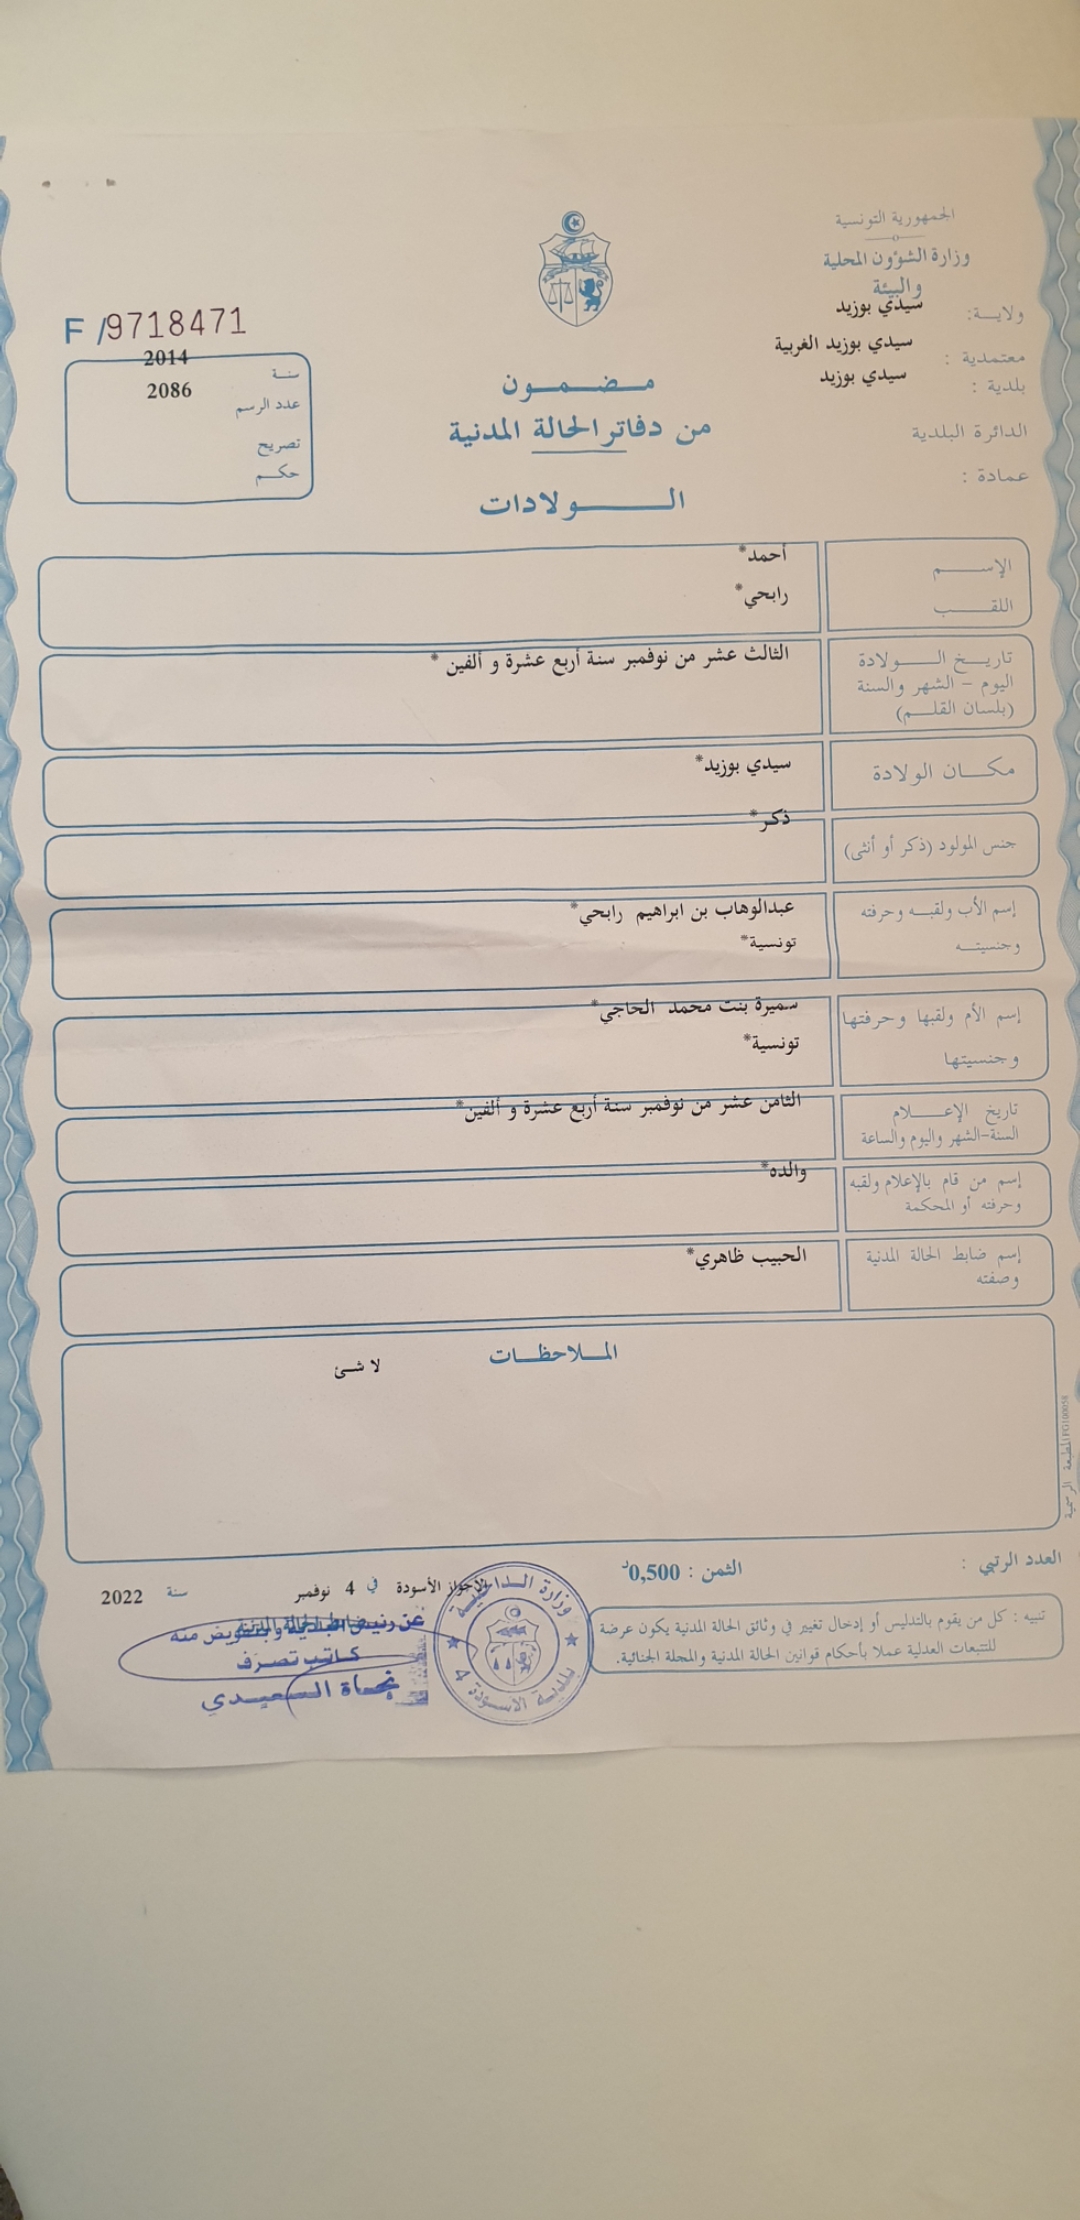 الجمهورية التونسية
وزارة الشؤون المحلية
والبيئة
ولاية: سيدي بوزيد
معتمدية : سيدي بوزيد الغربية
بلدية : سيدي بوزيد
الدائرة البلدية
عمادة :
مضمون
من دفاتر الحالة المدنية
الولادات
F /9718471
سنة 2014
عدد الرسم 2086
تصريح
حكم
الإسم أحمد*
اللقب رابحي*
تاريخ الولادة الثالث عشر من نوفمبر سنة أربع عشرة و ألفين *
اليوم - الشهر والسنة
(بلسان القلم)
مكان الولادة سيدي بوزيد*
جنس المولود (ذكر أو أنثى) ذكر*
إسم الأب ولقبه وحرفته عبدالوهاب بن ابراهيم رابحي*
وجنسيته تونسية*
إسم الأم ولقبها وحرفتها سميرة بنت محمد الحاجي*
وجنسيتها تونسية*
تاريخ الإعلام الثامن عشر من نوفمبر سنة أربع عشرة و ألفين*
السنة-الشهر واليوم والساعة
إسم من قام بالإعلام ولقبه والده*
وحرفته أو المحكمة
إسم ضابط الحالة المدنية الحبيب ظاهري*
وصفته
الملاحظات
لا شئ
المطبعة الرسمية
العدد الرتبي :
الثمن : 0,500د
الأسودة في 4 نوفمبر سنة 2022
تنبيه : كل من يقوم بالتدليس أو إدخال تغيير في وثائق الحالة المدنية يكون عرضة
للتتبعات العدلية عملا بأحكام قوانين الحالة المدنية والمجلة الجنائية.
عن رئيس البلدية وبتفويض منه
كاتب تصرف
نجاة السعيدي
وزارة الداخلية
بلدية الاسودة 4